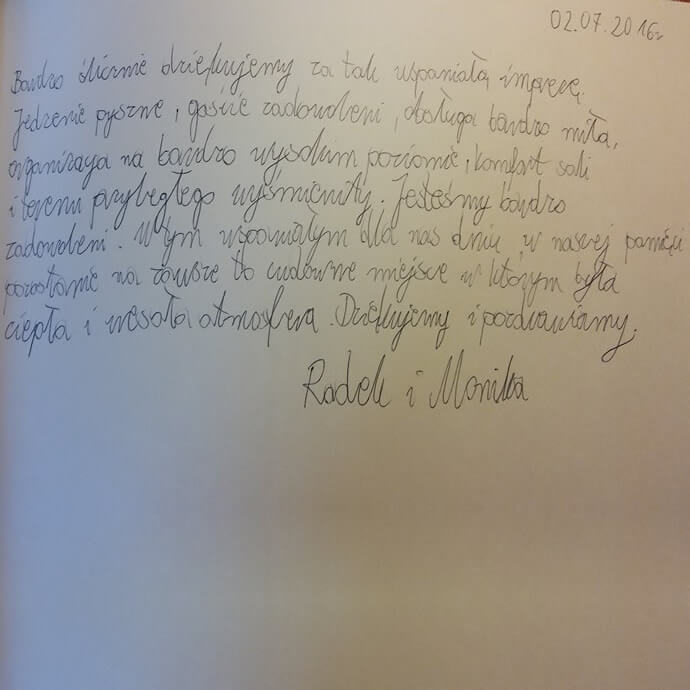 02.07.2016r
Bardzo ślicznie dziękujemy za tak wspaniałą imprezę.
Jedzenie pyszne, goście zadowoleni, obsługa bardzo miła,
organizacja na bardzo wysokim poziomie, komfort sali
i terenu przyległego wyśmienity. Jesteśmy bardzo
zadowoleni. W tym wspaniałym dla nas dniu, w naszej pamięci
pozostanie na zawsze to cudowne miejsce w którym była
ciepła i wesoła atmosfera. Dziękujemy i pozdrawiamy.
Radek i Monika